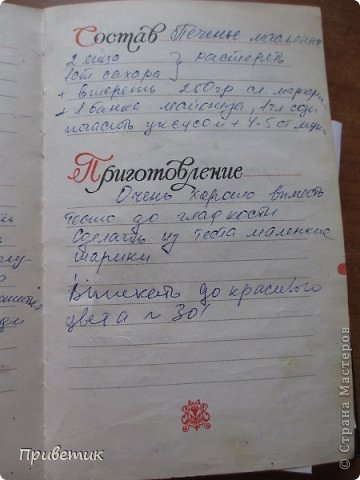 Состав Печенье масленка
2 яйца } растереть
1 ст сахара
+ втереть 250гр сл. маргари
+ 1 банка майонеза, 1 ч л соды
погасить уксусом + 4-5 ст муки
Приготовление
Очень хорошо вымесить
тесто до гладкости
Сделать из теста маленькие
шарики
Выпекать до красивого
цвета ~ 30'
Приветик
© Страна Мастеров